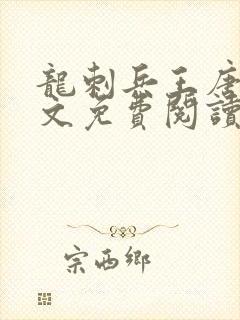 龍刺兵王唐
文免費閱讀
宗西鄉